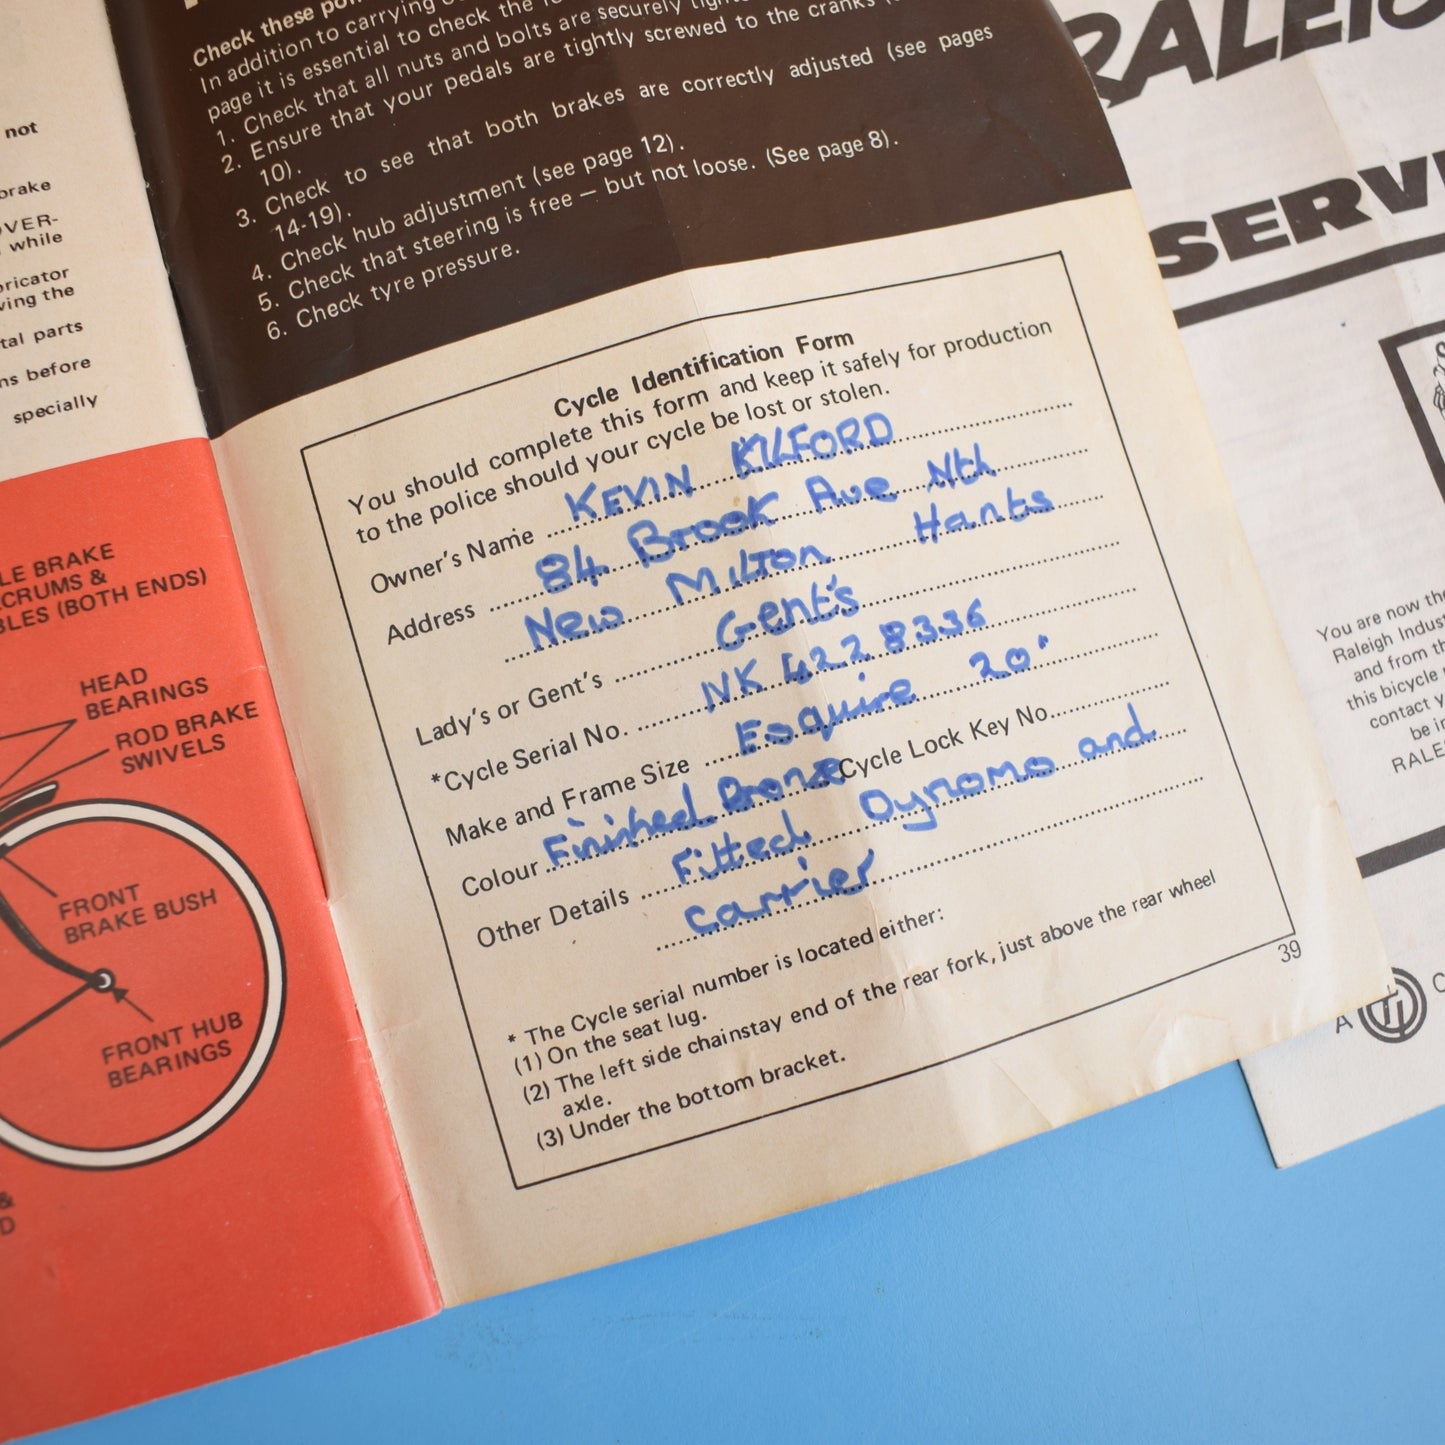 not
brake
OVER-
while
bricator
ving the
tal parts
ns before
specially
LE BRAKE
CRUMS &
BLES (BOTH ENDS)
HEAD
BEARINGS
ROD BRAKE
SWIVELS
FRONT
BRAKE BUSH
FRONT HUB
BEARINGS
&
D
Check these
In addition to carrying
page it is essential to check the
1. Check that all nuts and bolts are securely
2. Ensure that your pedals are tightly screwed to the cranks
10).
3. Check to see that both brakes are correctly adjusted (see pages
14-19).
4. Check hub adjustment (see page 12).
5. Check that steering is free – but not loose. (See page 8).
6. Check tyre pressure.
Cycle Identification Form
You should complete this form and keep it safely for production
to the police should your cycle be lost or stolen.
Owner's Name KEVIN KILFORD
Address 84 Brook Ave Nth
New Milton Hants
Lady's or Gent's Gent's
*Cycle Serial No. NK 4228336
Make and Frame Size Esquire 20"
Colour Finished Bronze Cycle Lock Key No.
Other Details Fitted Dynomo and
carrier
* The Cycle serial number is located either:
(1) On the seat lug.
(2) The left side chainstay end of the rear fork, just above the rear wheel
axle.
(3) Under the bottom bracket.
39
RALEIG
SERV
You are now the
Raleigh Indus
and from th
this bicycle
contact y
be i
RALE
A TI C